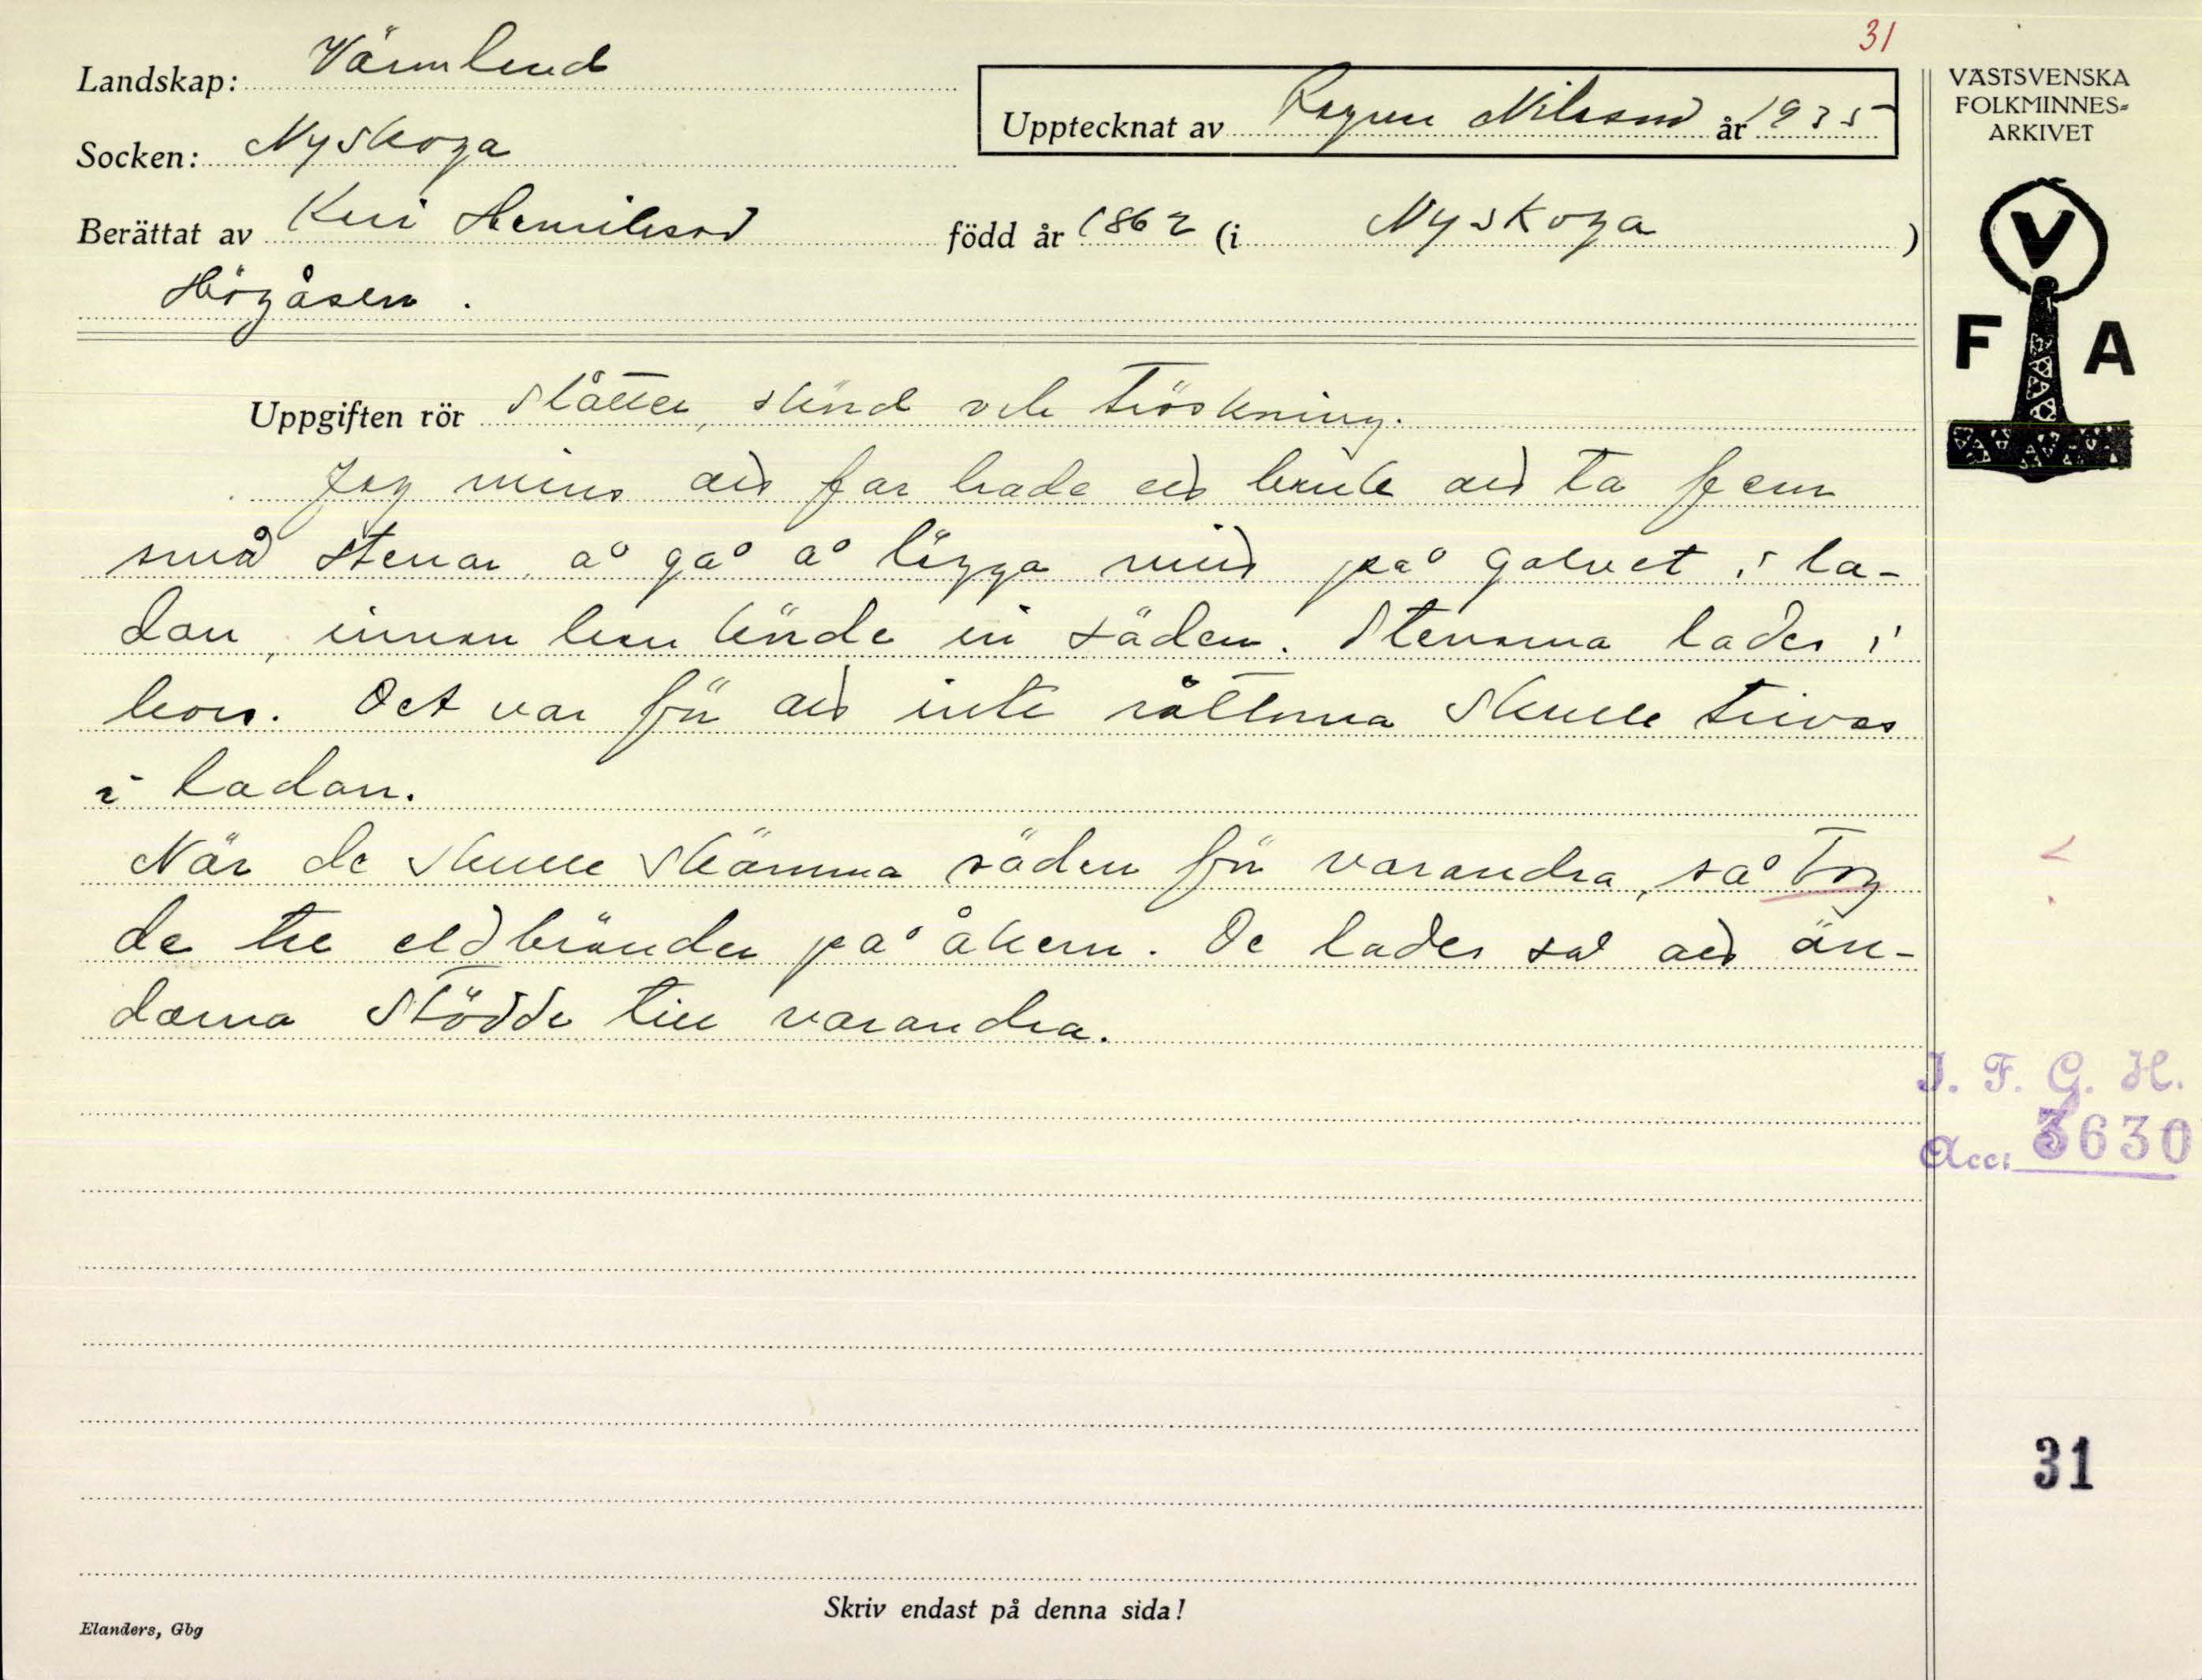 31
Landskap: Värmland
VÄSTSVENSKA
FOLKMINNES=
ARKIVET
Upptecknat av Ragnar Nilsson år 1935
Socken: Nyskoga
Berättat av Kari Henriksson född år 1862 (i Nyskoga)
Högåsen.
V
F A
Uppgiften rör Slåtter, skörd och tröskning.
Jag mins att far hade ett bruk att ta fem
små stenar å gå å lägga ned på golvet i la-
dan, innan han körde in säden. Stenarna lades i
kors. Det var för att inte råttorna skulle trivas
i ladan.
När de skulle skämma säden för varandra, så tog
de tre eldbränder på åkern. De lades så att än-
darna stödde till varandra.
I. F. G. H.
Acc: 3630
31
Skriv endast på denna sida!
Elanders, Gbg